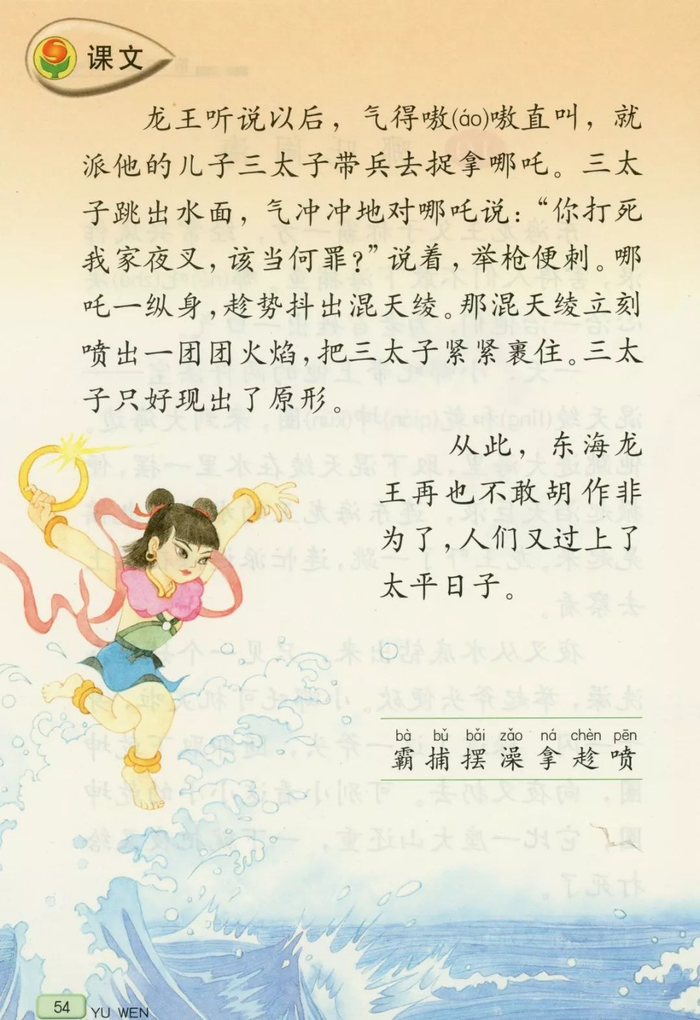 课文
龙王听说以后，气得嗷(áo)嗷直叫，就
派他的儿子三太子带兵去捉拿哪吒。三太
子跳出水面，气冲冲地对哪吒说：“你打死
我家夜叉，该当何罪？”说着，举枪便刺。哪
吒一纵身，趁势抖出混天绫。那混天绫立刻
喷出一团团火焰，把三太子紧紧裹住。三太
子只好现出了原形。
从此，东海龙
王再也不敢胡作非
为了，人们又过上了
太平日子。
bà bǔ bǎi zǎo ná chèn pēn
霸捕摆澡拿趁喷
54 YU WEN